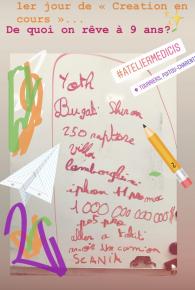 1er jour de « Creation en
cours »...
De quoi on rêve à 9 ans?
#ATELIERMEDICIS
TOURRIERS, POITOU-CHARENTE
Yoth
Bugati Shiron
250 raptore
villa
lamborghini
iphon 11 pro max
1 000 000 000 000
aller a Tahiti
camion
SCANIA